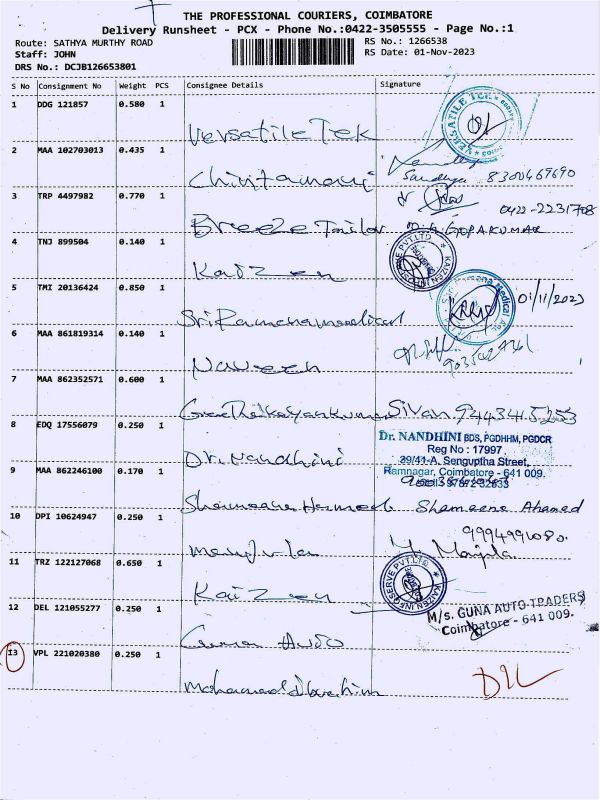 THE PROFESSIONAL COURIERS, COIMBATORE
Delivery Runsheet - PCX - Phone No.:0422-3505555 - Page No.:1
Route: SATHYA MURTHY ROAD
RS No.: 1266538
Staff: JOHN
RS Date: 01-Nov-2023
DRS No.: DCJB126653801
S No Consignment No Weight PCS Consignee Details Signature
1 DDG 121857 0.580 1
Versatile Tek
VERSATILE TEK
2 MAA 102703013 0.435 1
Chintamani
Sandhya 8300469690
3 TRP 4497982 0.770 1
Breeze Tailor
0422-2231708
GOPAKUMAR
4 TNJ 899504 0.140 1
Kaizen
5 TMI 20136424 0.850 1
Sri Ramana medical
01/11/2023
6 MAA 861819314 0.140 1
Naveen
7 MAA 862352571 0.600 1
Sivan 9443445253
8 EDQ 17556079 0.250 1
Dr. Nandhini
Dr. NANDHINI BDS, PGDHHM, PGDCR
Reg No : 17997
29/41-A, Senguptha Street,
Ramnagar, Coimbatore - 641 009.
9 MAA 862246100 0.170 1
Shameena Ahamed
10 DPI 10624947 0.250 1
manjula
M. Manjula
11 TRZ 122127068 0.650 1
Kaizen
KAIZEN INFOSERVE PVT.LTD
12 DEL 121055277 0.250 1
Guna Auto
M/s. GUNA AUTO TRADERS
Coimbatore - 641 009.
13 VPL 221020380 0.250 1
Mohamad Ibrahim